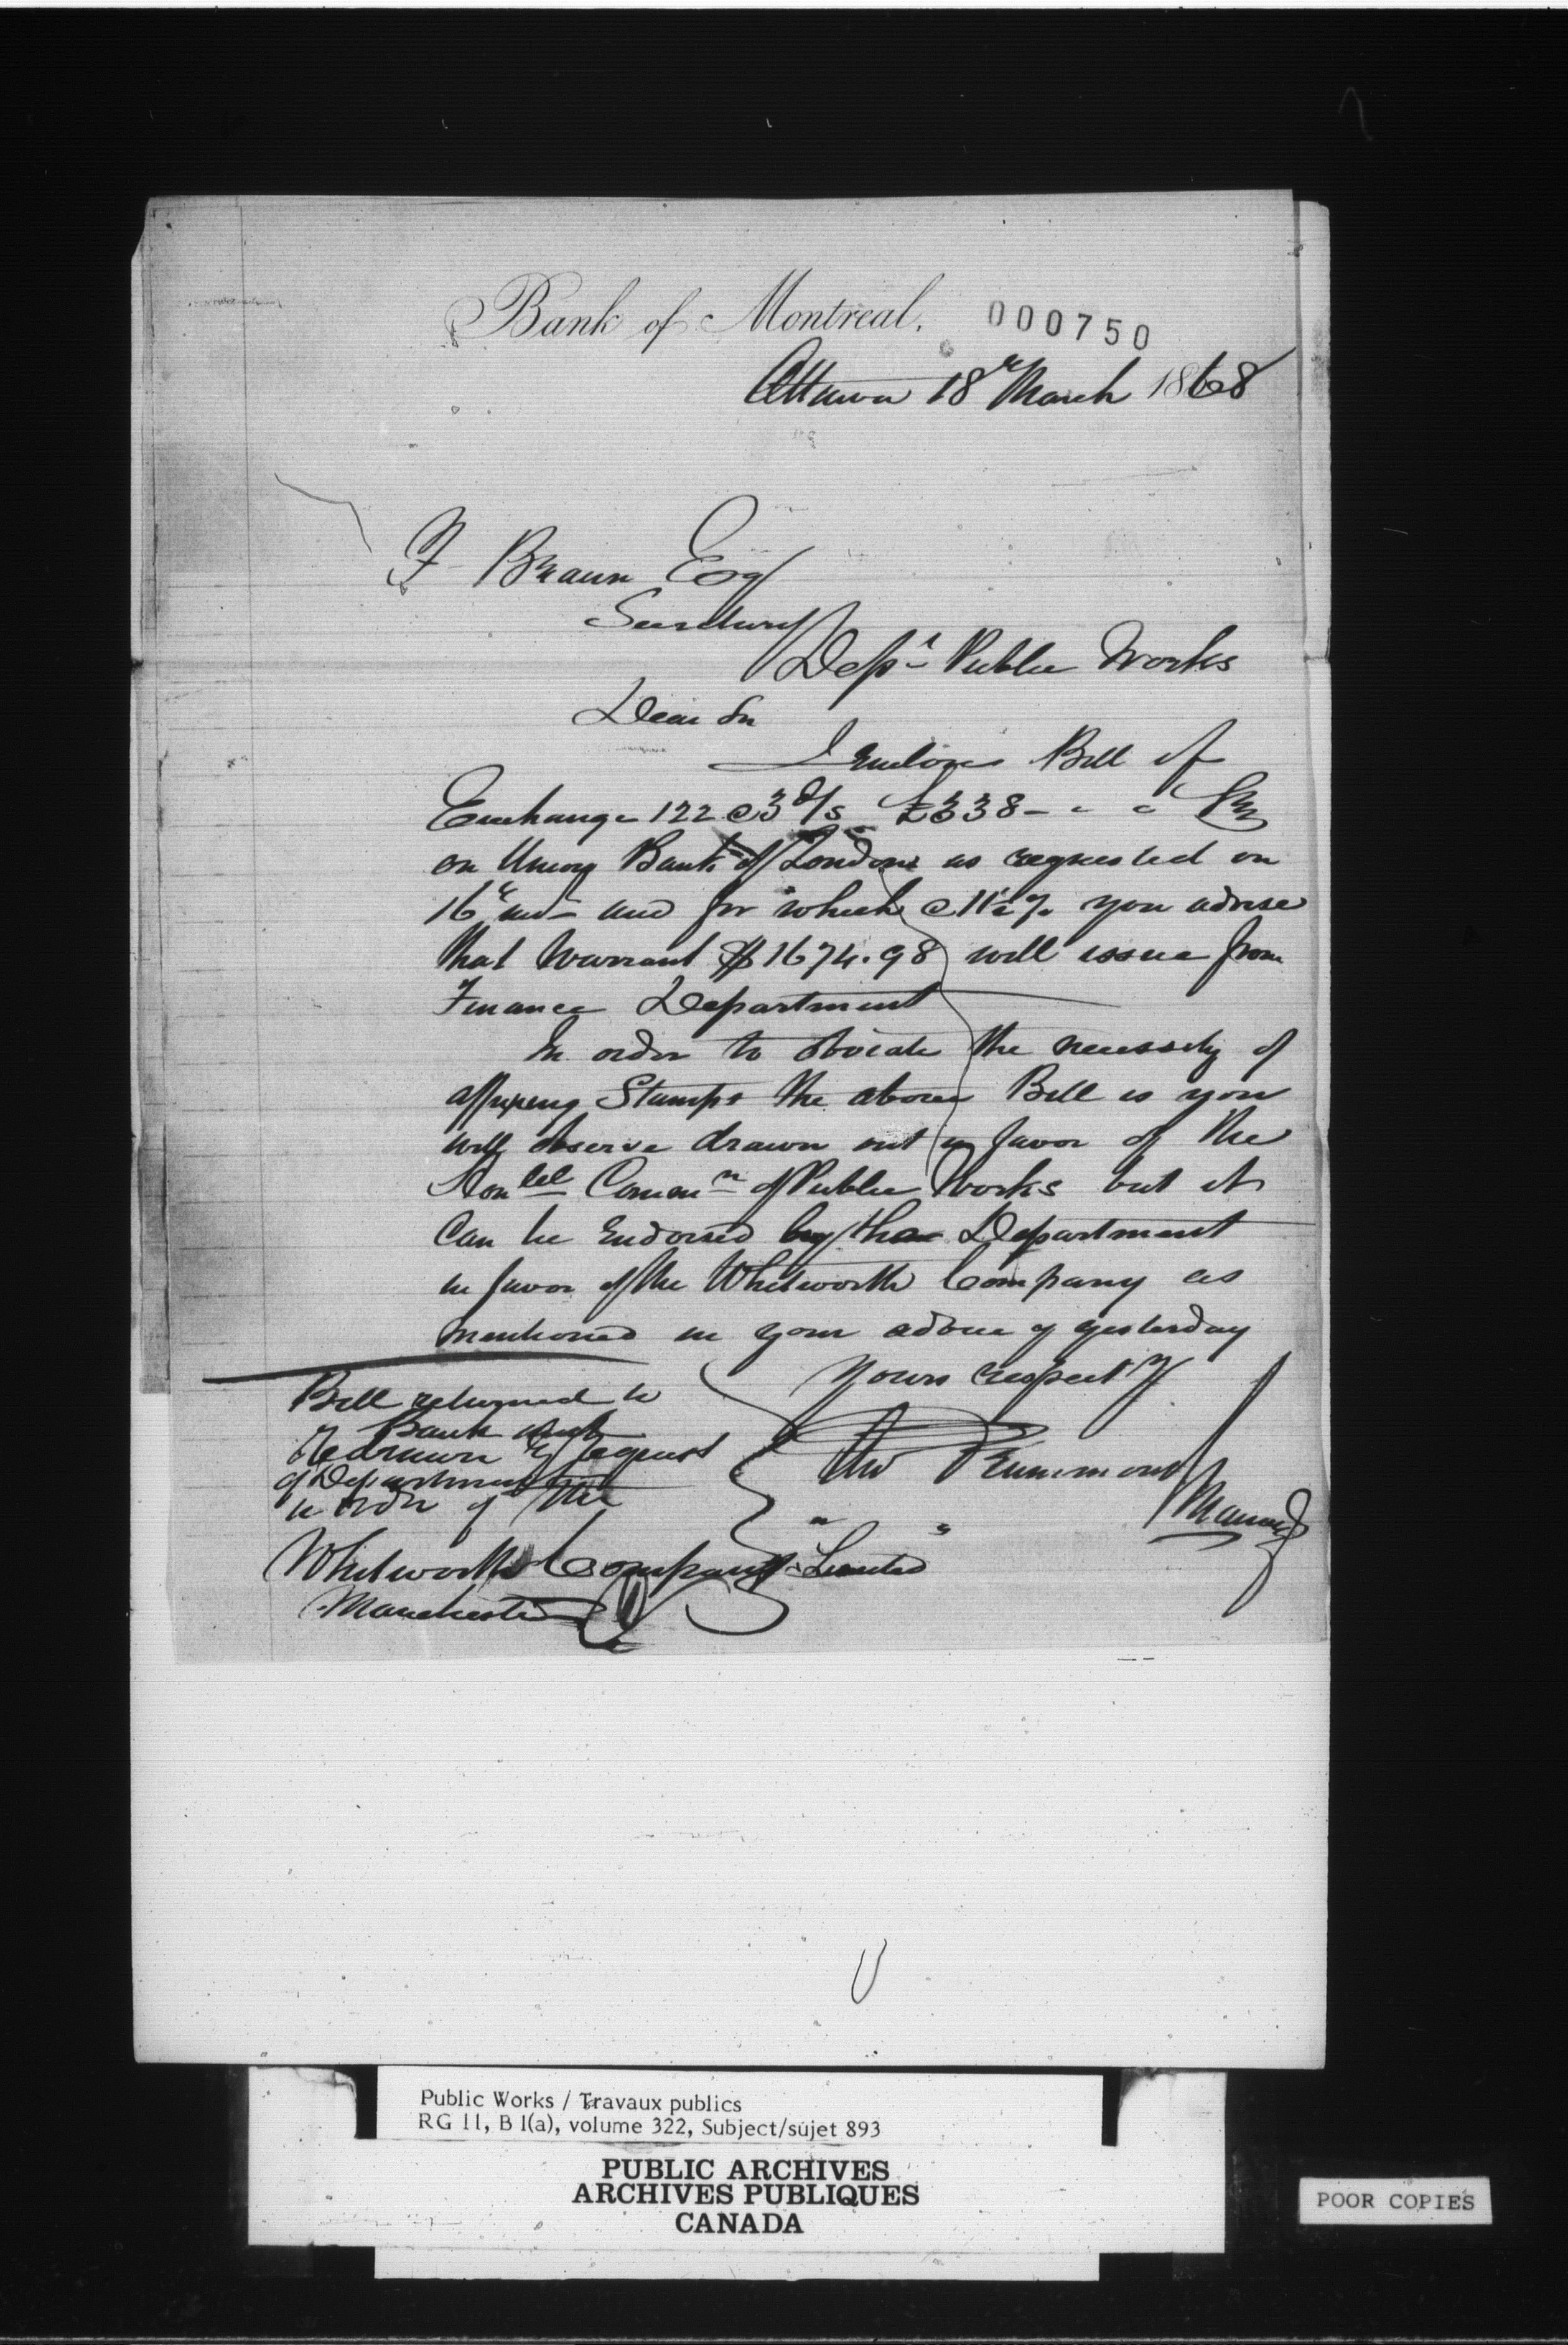 Bank of Montreal.
000750
Ottawa 18th March 1868
F Braun Esq
Secretary
Dept Public Works
Dear Sir
I enclose Bill of
Exchange 122 @ 3 d/s £338 - - -
on Union Bank of London as requested on
16th and for which @ 11½% you advise
that Warrant $1674.98 will issue from
Finance Department
In order to obviate the necessity of
affixing Stamps the above Bill is you
will observe drawn out in favor of the
Honble Commr of Public Works but it
can be Endorsed by the Department
in favor of the Whitworth Company as
mentioned in your advice of yesterday
Yours respecty
Drummond
Manager
Bill returned to
Bank and
Redrawn by request
of Department
to order of The
Whitworth Company Limited
Manchester
Public Works / Travaux publics
RG 11, B 1(a), volume 322, Subject/sujet 893
PUBLIC ARCHIVES
ARCHIVES PUBLIQUES
CANADA
POOR COPIES